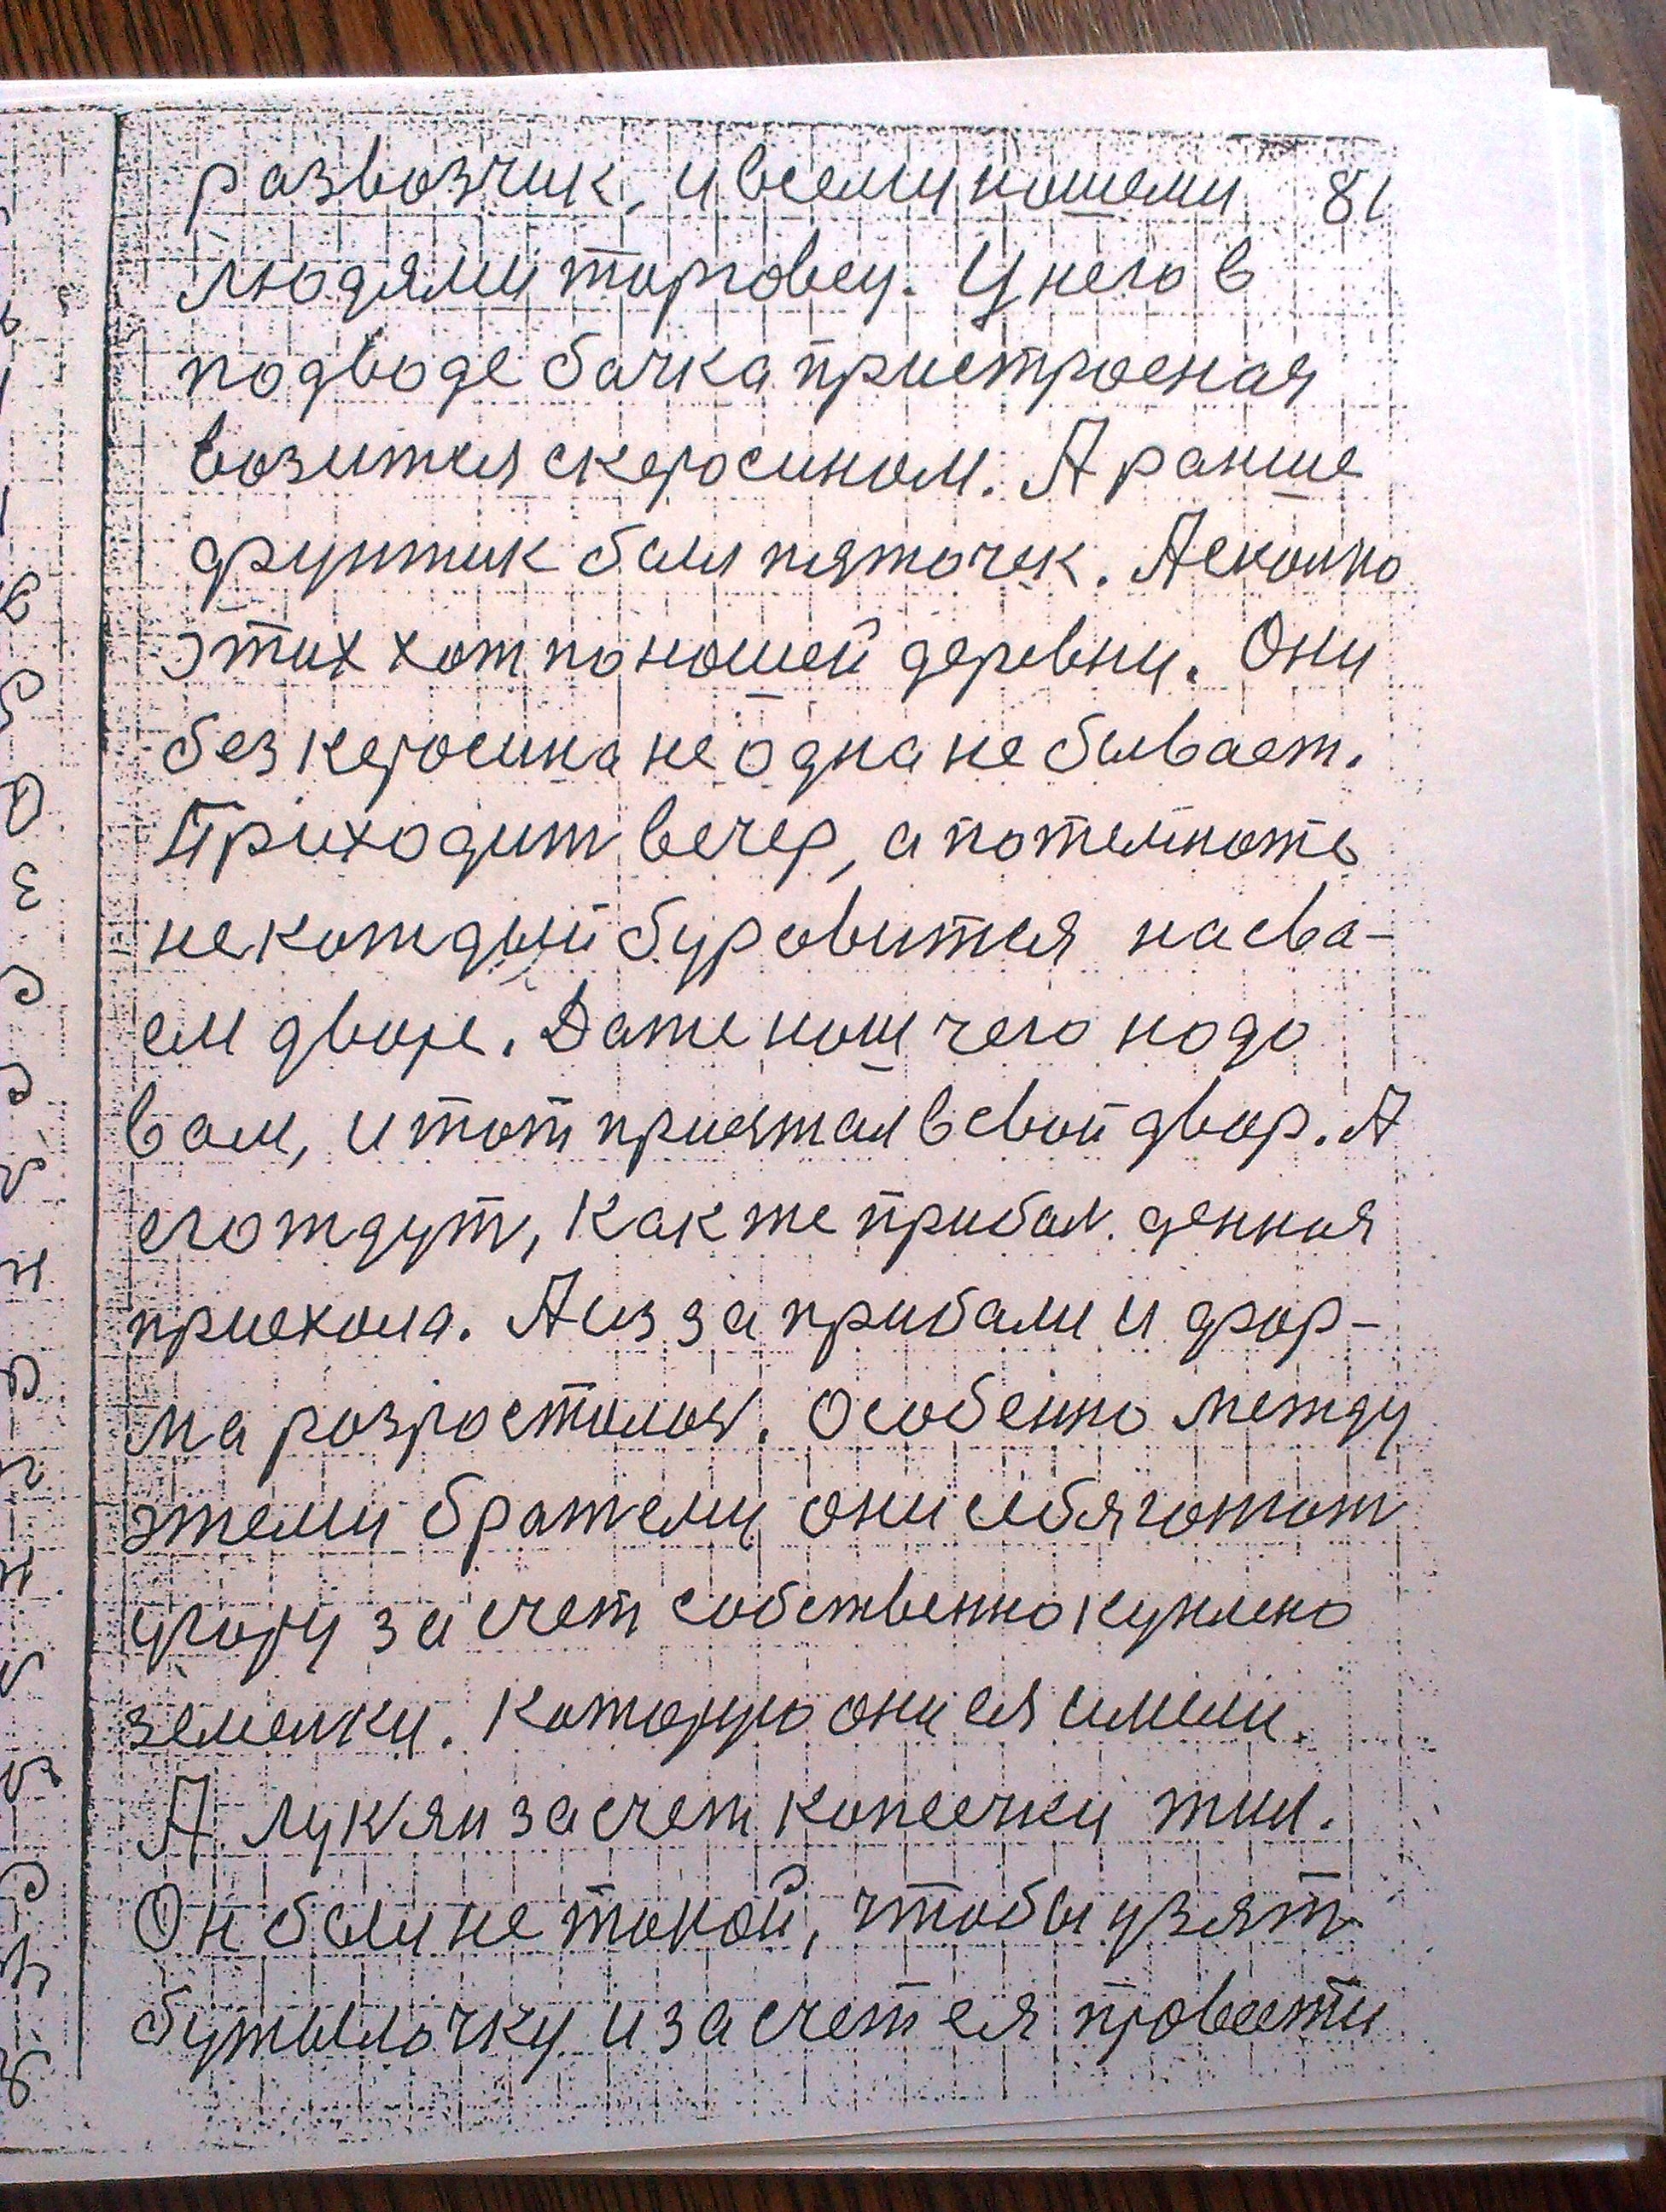 развозчик, и всеми ношеми 81
людями торговец. У него в
подводе бачка пристроеная
возится скеросином. А ранше
фунтик был пяточек. А сколко
этих хот по ношей деревни. Они
без керосина не одна не бывает.
Приходит вечер, а потемноте
не кождый буровится на сва-
ем дворе. Даже нош чего нодо
вам, и тот прижтал в свой двор. А
его ждут, как же прибыл. денная
приехола. А из за прибали и фор-
ма розростолоя. Особенно между
этеми братеми они себя готот
угору за счет собственно куплено
земелки. Которую они ея имели.
А Лукян за счет копеечки жил.
Он был не токой, чтобы узят
бутылочку и за счет ея провести